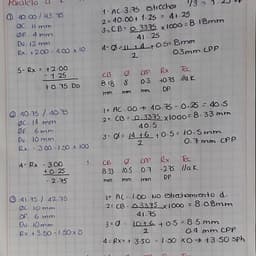 ① 40.00 / 43.75
OC 11 mm
OF 4 mm
Dv. 12 mm
Rx. +2.00 -4.00 x 10
1- AC. 3.75 Estrecho
2- 40.00 + 1.25 = 41.25
3- CB = 0.3375 x1000 = 8.18mm
41.25
4- Ø = 11 + 4 + 0.5 = 8mm
2
0.3mm CPP
5- Rx = +2.00
- 1.25
+0.75 D
CB Ø CPP Rx Tec
8.18 8 0.3 +0.75
mm mm mm DP
② 40.75 / 40.75
OC 14 mm
OF 6 mm
Dv 10 mm
Rx - 3.00 - 1.00 x 100
1= AC .00 + 40.75 - 0.25 = 40.5
2= CB = 0.3375 x1000 = 8.33 mm
40.5
3= Ø = 14 + 6 + 0.5 = 10.5 mm
2
0.7 mm CPP
4- Rx - 3.00
+ 0.25
- 2.75
CB Ø CPP Rx Tec
8.33 10.5 0.7 -2.75
mm mm mm DP
③ 41.75 / 42.75
OC 10 mm
OF 6 mm
Dv 10 mm
Rx + 3.50 - 1.50 x 0
1= AC 1.00 No
2= CB 0.3375 x1000 = 8.08mm
41.75
3= Ø = 10 + 6 + 0.5 = 8.5 mm
2
0.4 mm CPP
4= Rx = + 3.50 - 1.50 x 0 → + 3.50 sph